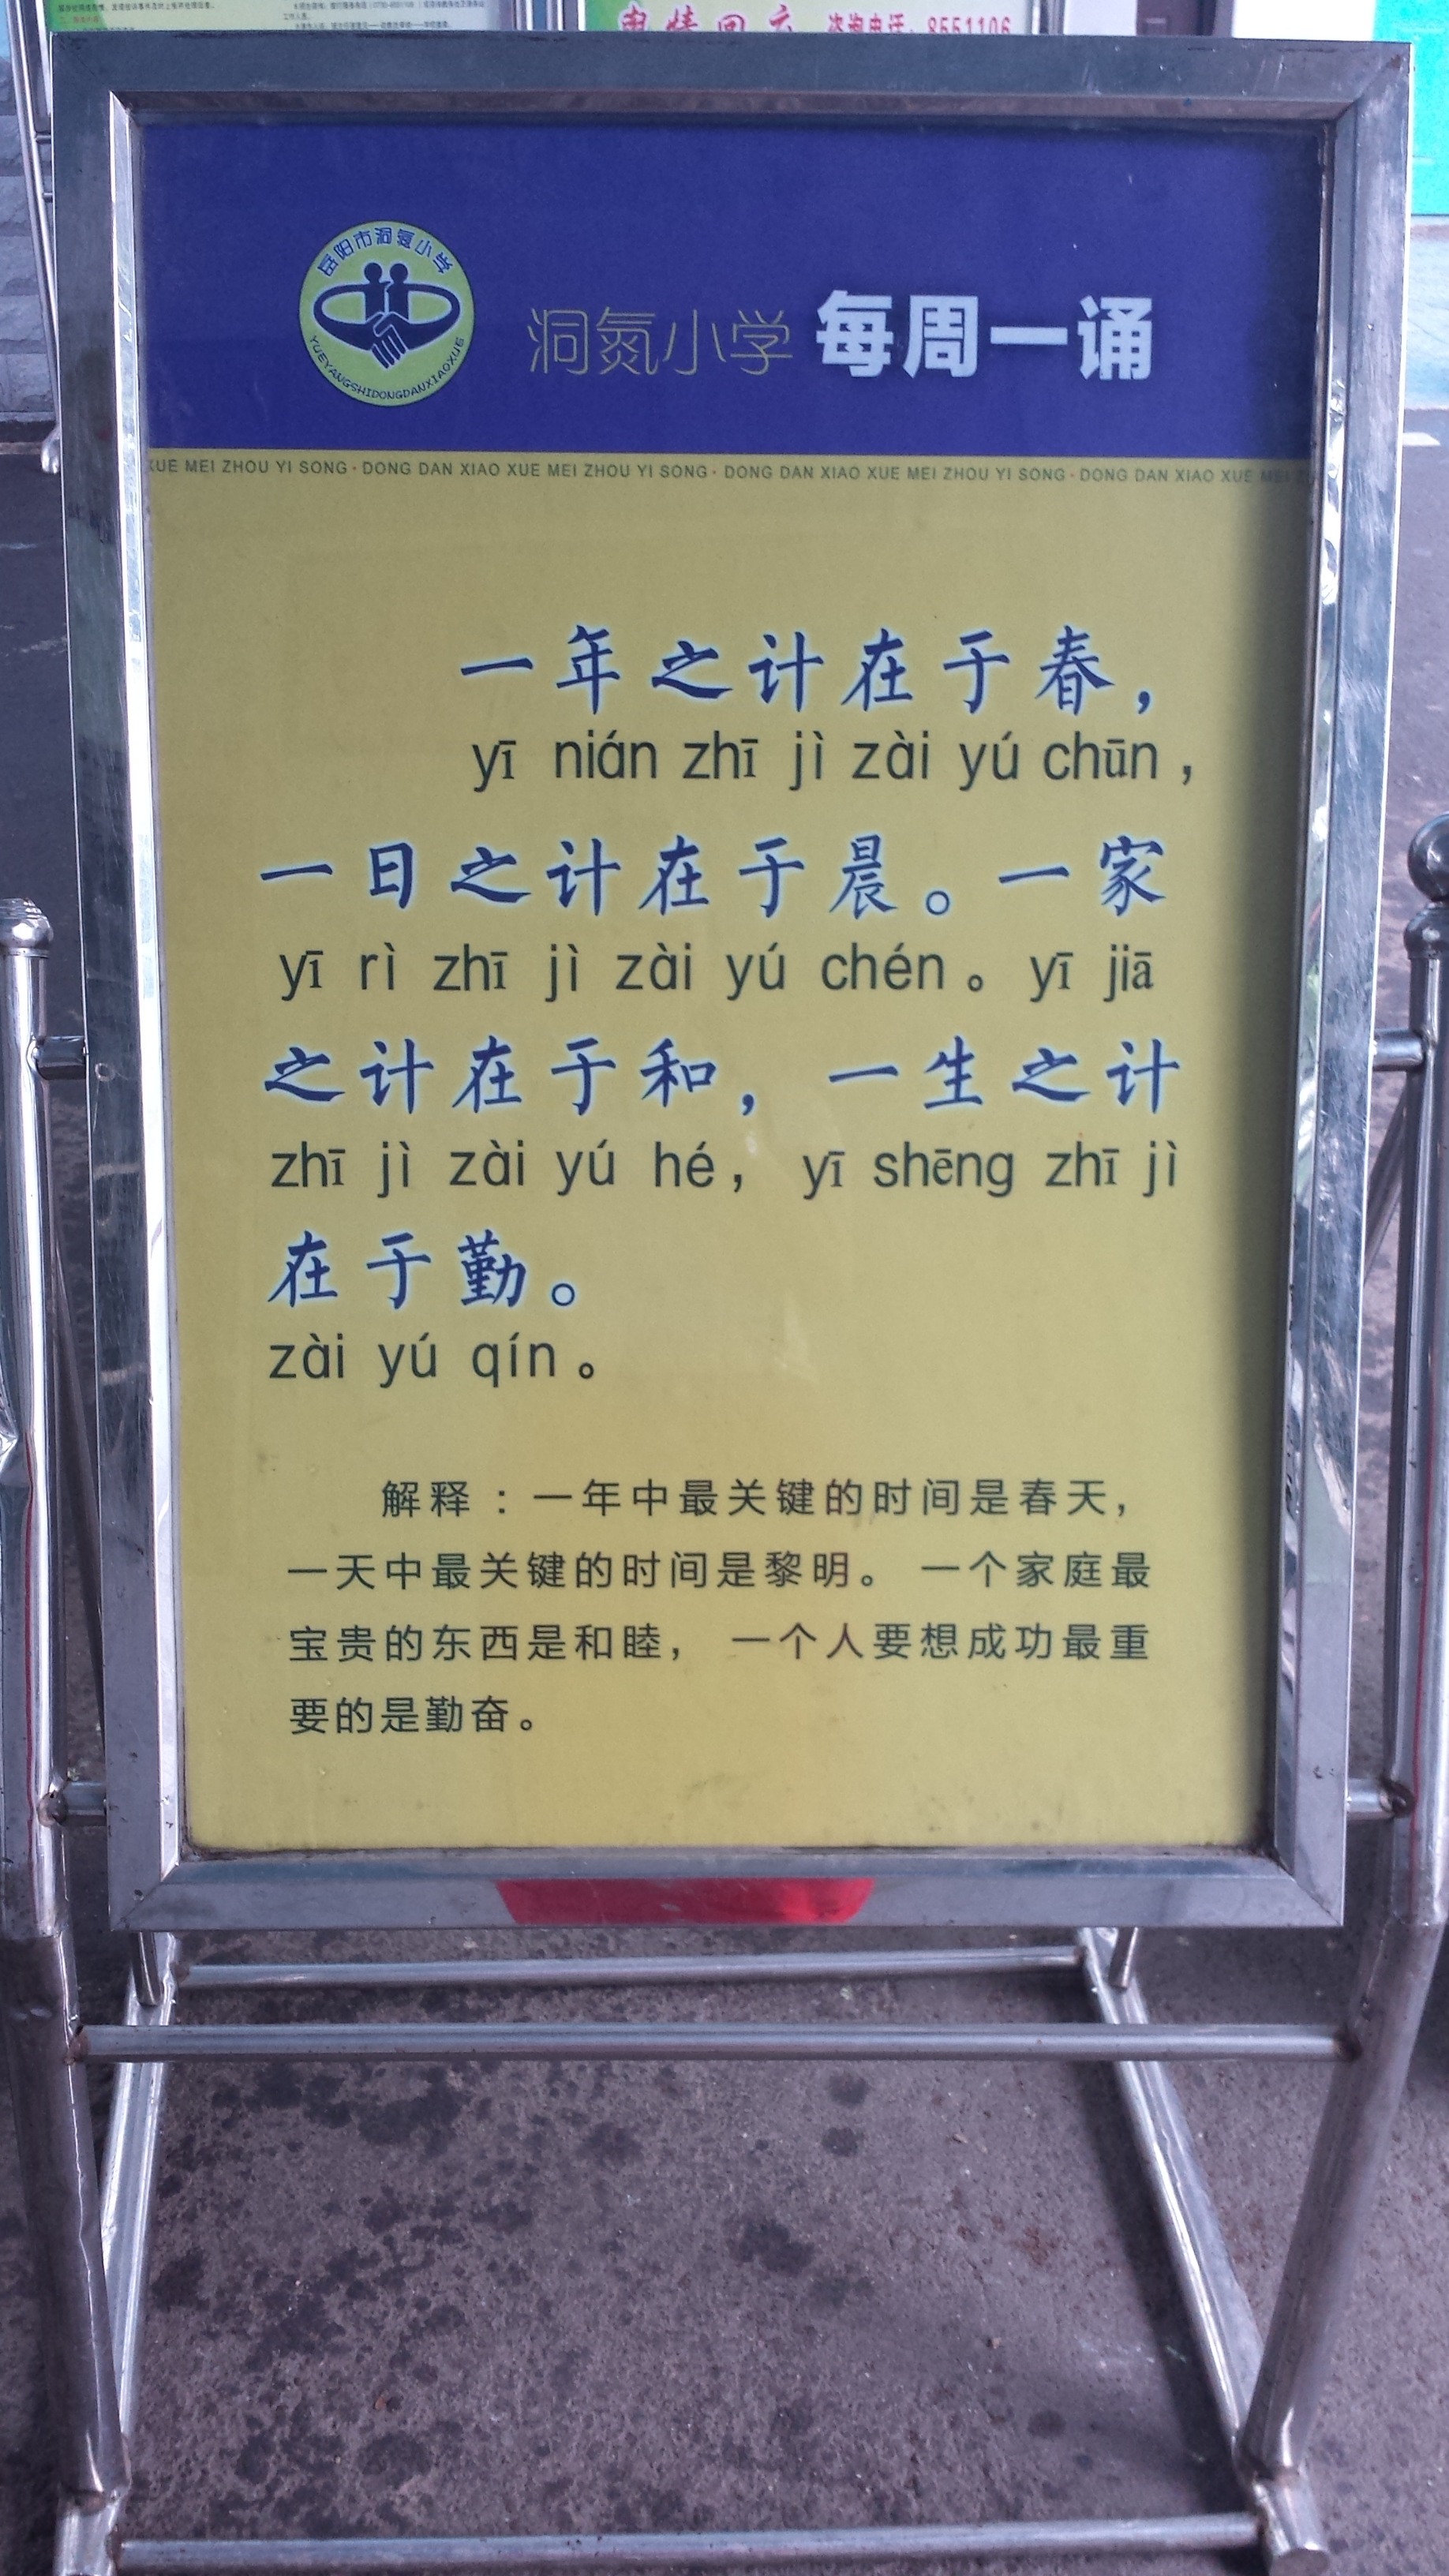 咨询电话：8551106
岳阳市洞氮小学
YUEYANGSHIDONGDANXIAOXUE
洞氮小学 每周一诵
XUE MEI ZHOU YI SONG · DONG DAN XIAO XUE MEI ZHOU YI SONG · DONG DAN XIAO XUE MEI ZHOU YI SONG · DONG DAN XIAO XUE MEI
一年之计在于春，
yī nián zhī jì zài yú chūn，
一日之计在于晨。一家
yī rì zhī jì zài yú chén。yī jiā
之计在于和，一生之计
zhī jì zài yú hé，yī shēng zhī jì
在于勤。
zài yú qín。
解释：一年中最关键的时间是春天，
一天中最关键的时间是黎明。一个家庭最
宝贵的东西是和睦，一个人要想成功最重
要的是勤奋。